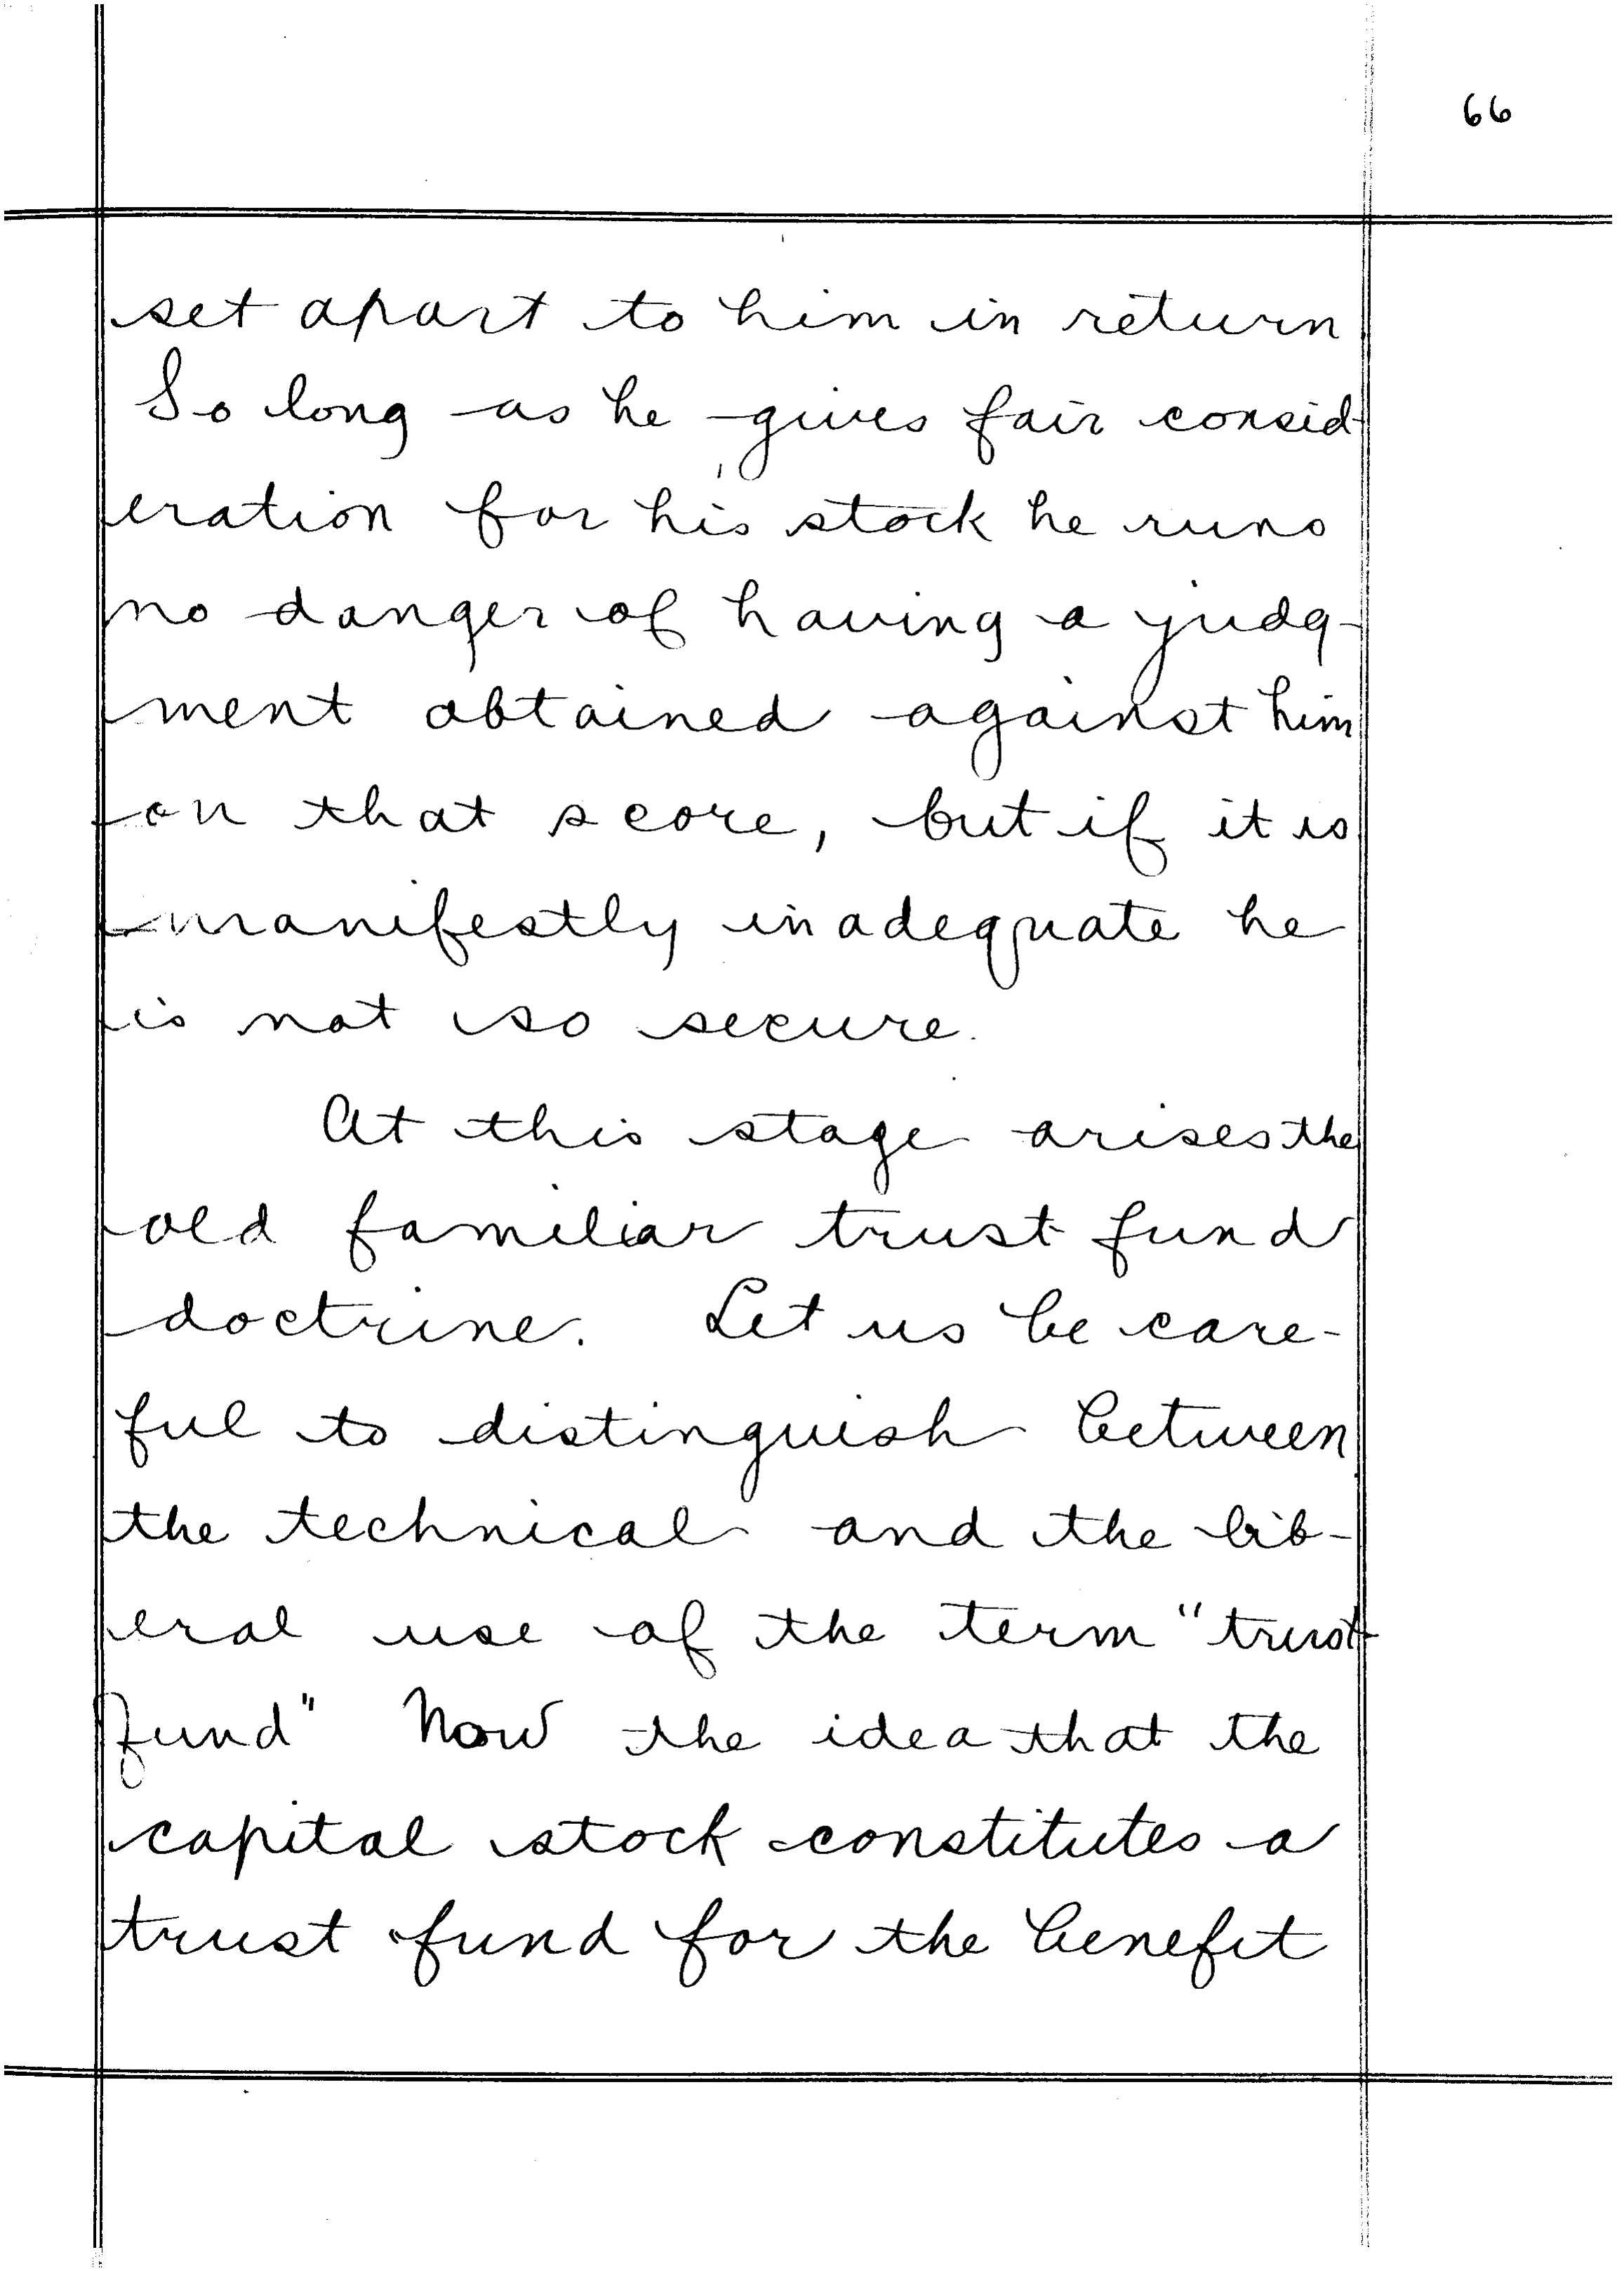 66
set apart to him in return
So long as he gives fair consid-
eration for his stock he runs
no danger of having a judg-
ment obtained against him
on that score, but if it is
manifestly inadequate he
is not so secure.
At this stage arises the
old familiar trust fund
doctrine. Let us be care-
ful to distinguish between
the technical and the lib-
eral use of the term "trust
fund" Now the idea that the
capital stock constitutes a
trust fund for the benefit